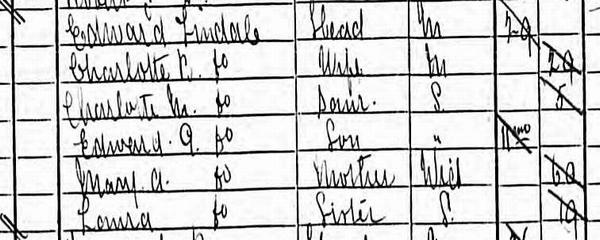 Edward Tindale Head M 29
Charlotte E. do Wife M 29
Charlotte M. do Daur. S. 5
Edward. G. do Son " 11 mo
Mary A. do Mother Wid 60
Laura do Sister S. 19